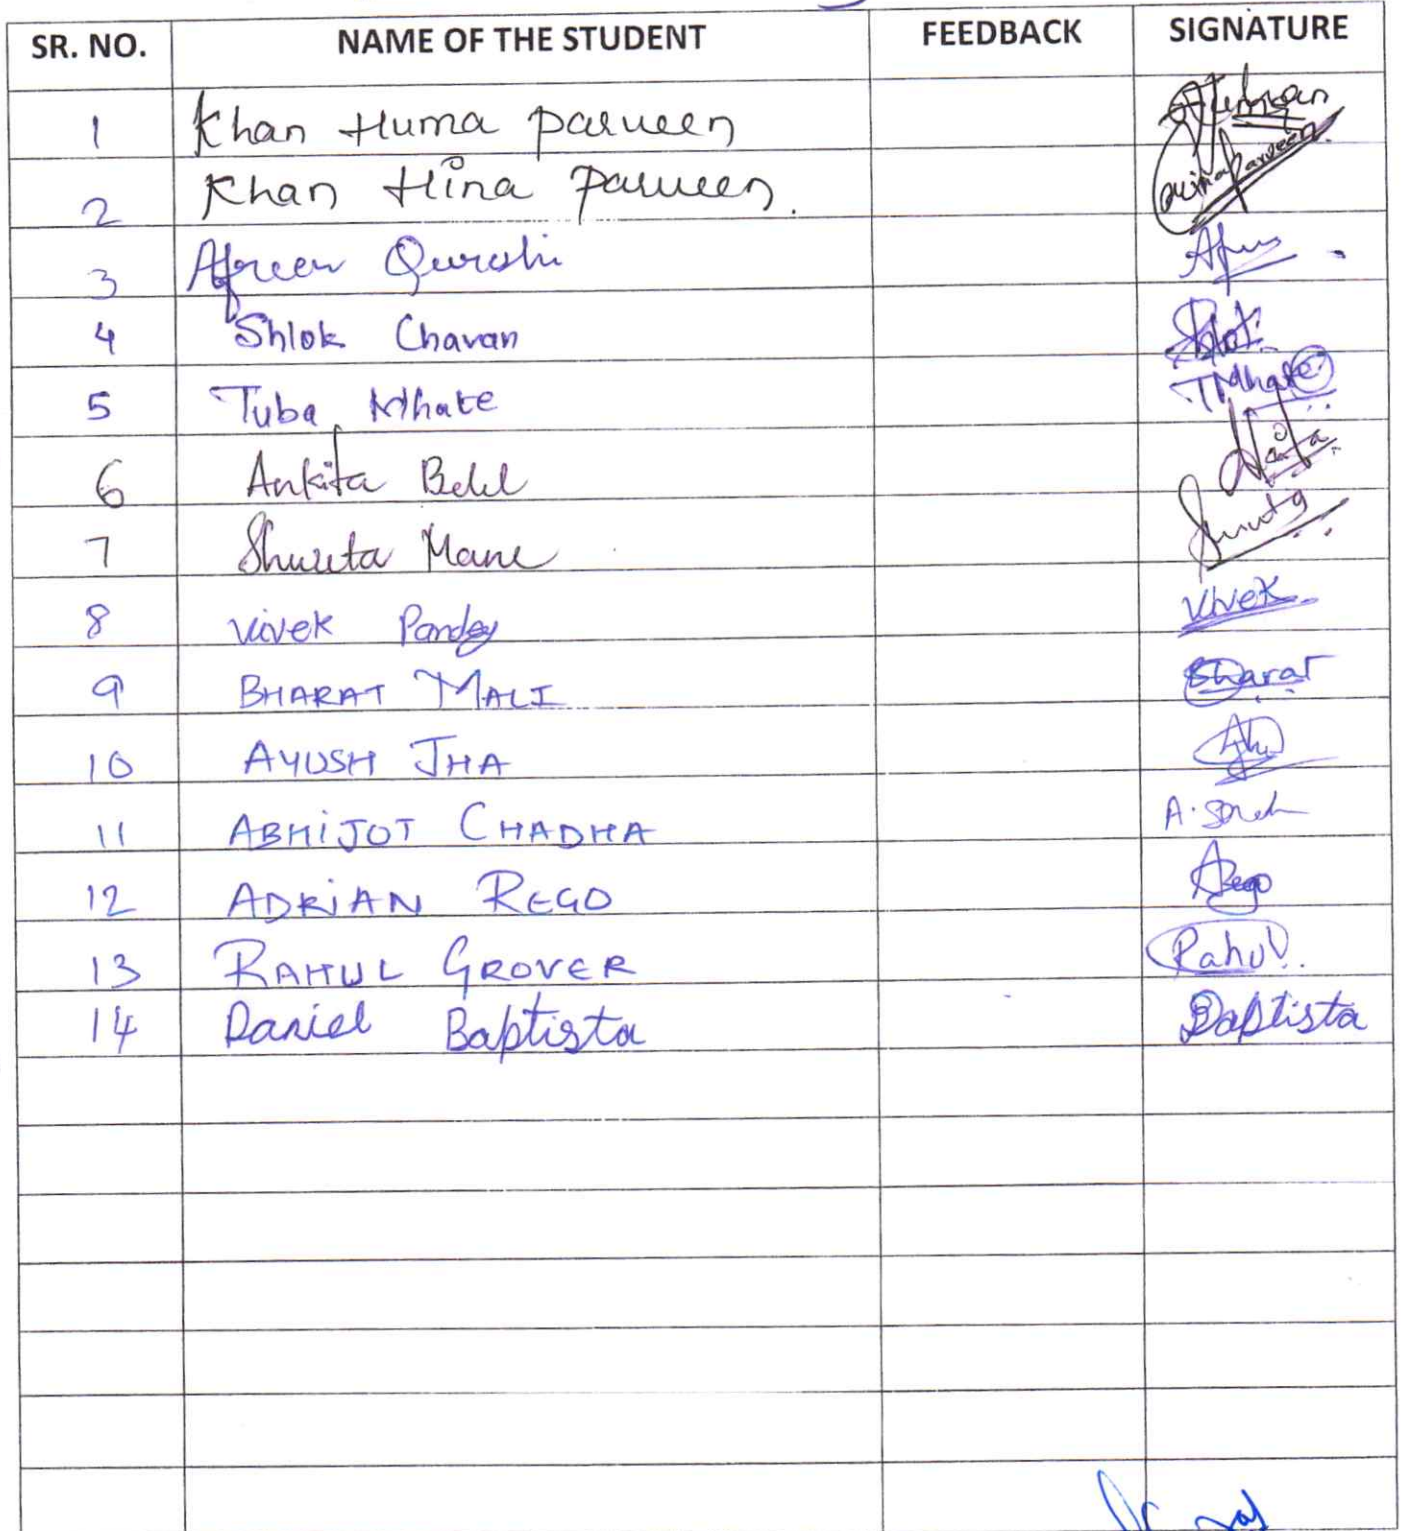 SR. NO. NAME OF THE STUDENT FEEDBACK SIGNATURE
1 Khan Huma parveen
2 Khan Hina Parveen.
3 Afreen Qureshi
4 Shlok Chavan Shlok
5 Tuba Mhate TMhate
6 Ankita
7 Shweta Mane
8 Vivek Pandey Vivek
9 BHARAT MALI Bharat
10 AYUSH JHA
11 ABHIJOT CHADHA
12 ADRIAN REGO Rego
13 RAHUL GROVER Rahul
14 Daniel Baptista Baptista